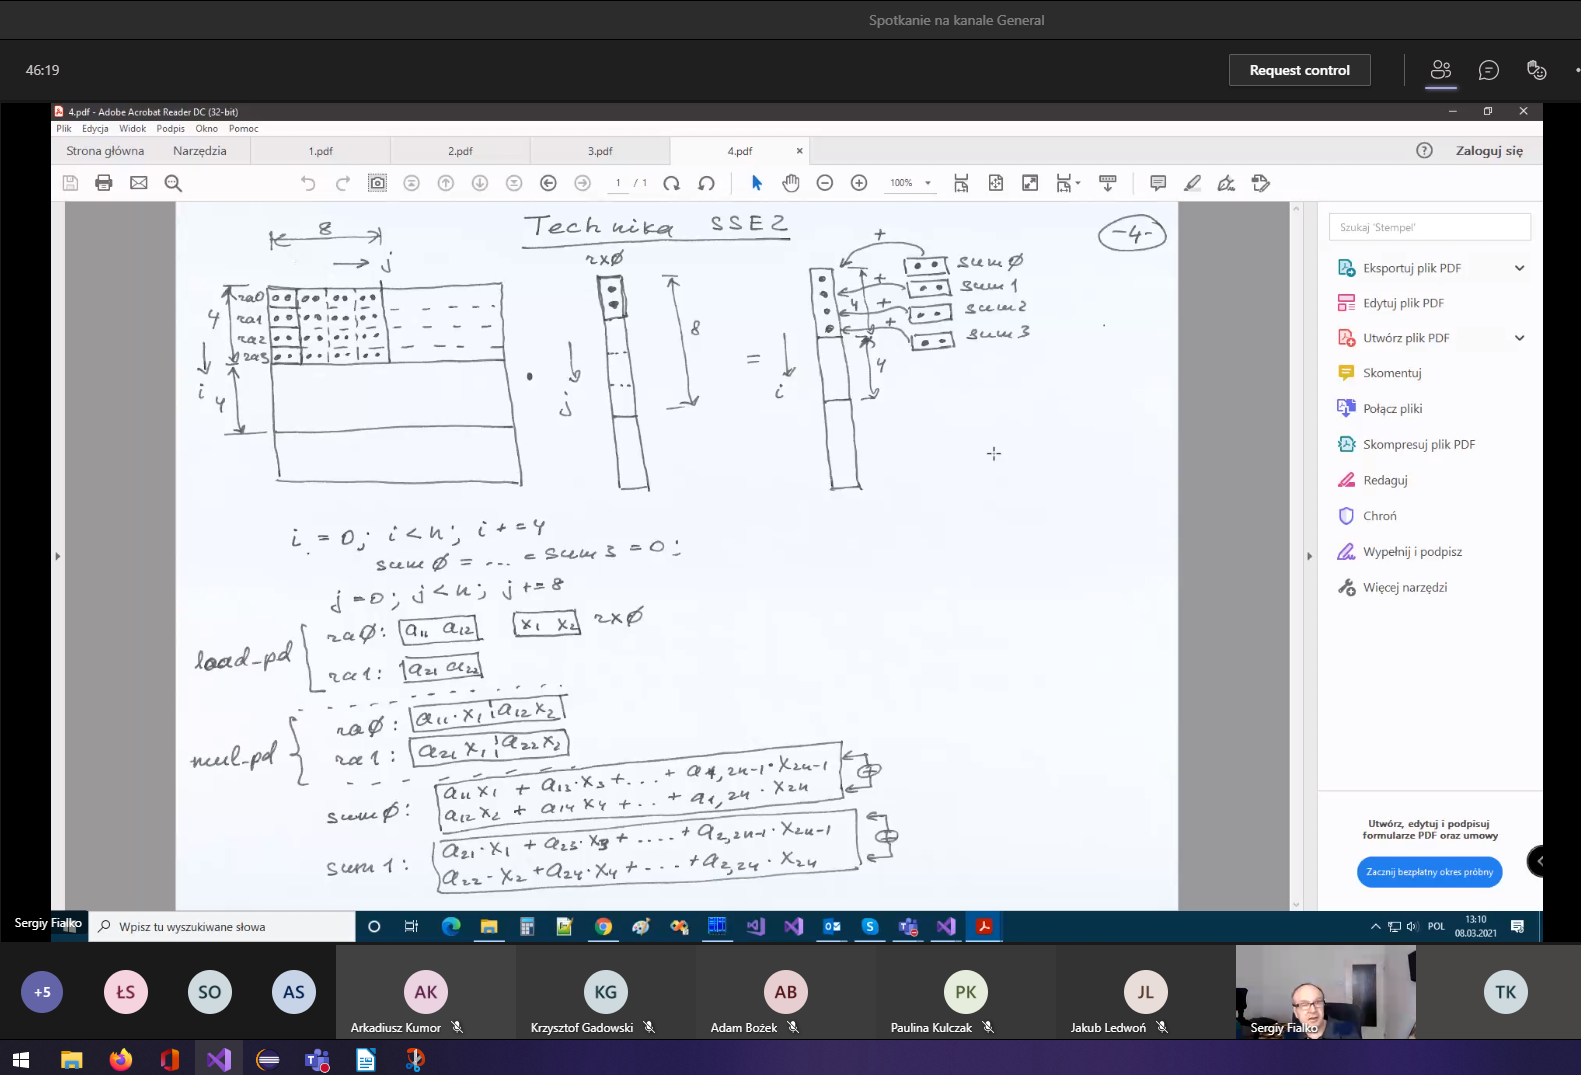 Spotkanie na kanale General
46:19
Request control
4.pdf - Adobe Acrobat Reader DC (32-bit)
Plik Edycja Widok Podpis Okno Pomoc
Strona główna Narzędzia 1.pdf 2.pdf 3.pdf 4.pdf Zaloguj się
1 / 1 100%
Technika SSE2
-4-
8
j
rx0
+ sum0
+ sum1
+ sum2
+ sum3
ra0
ra1
ra2
ra3
4
i
4
j
8
=
i
4
4
i = 0; i < n; i += 4
sum0 = ... = sum3 = 0;
j = 0; j < n; j += 8
load_pd
ra0: a11 a12 x1 x2 rx0
ra1: a21 a22
mul_pd
ra0: a11·x1 a12x2
ra1: a21x1 a22x2
sum0: a11x1 + a13·x3 + ... + a1,2n-1·x2n-1
a12x2 + a14x4 + ... + a1,2n·x2n
sum1: a21·x1 + a23·x3 + .... + a2,2n-1·x2n-1
a22·x2 + a24·x4 + ... + a2,2n·x2n
Szukaj 'Stempel'
Eksportuj plik PDF
Edytuj plik PDF
Utwórz plik PDF
Skomentuj
Połącz pliki
Skompresuj plik PDF
Redaguj
Chroń
Wypełnij i podpisz
Więcej narzędzi
Utwórz, edytuj i podpisuj
formularze PDF oraz umowy
Zacznij bezpłatny okres próbny
Sergiy Fialko
Wpisz tu wyszukiwane słowa
POL
13:10
08.03.2021
+5 ŁS SO AS AK KG AB PK JL TK
Arkadiusz Kumor Krzysztof Gadowski Adam Bożek Paulina Kulczak Jakub Ledwoń Sergiy Fialko